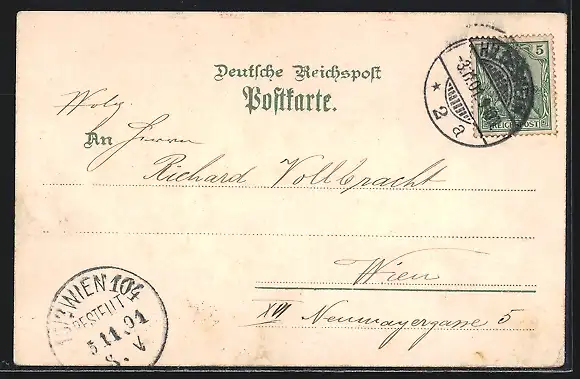 Deutsche Reichspost
Postkarte.
An Herrn
Richard Vollbracht
Wien
XVII Neumayergasse 5
5
REICHSPOST
-3.11.01.
* 2 a
WIEN 104
BESTELLT
5.11.01
8. V